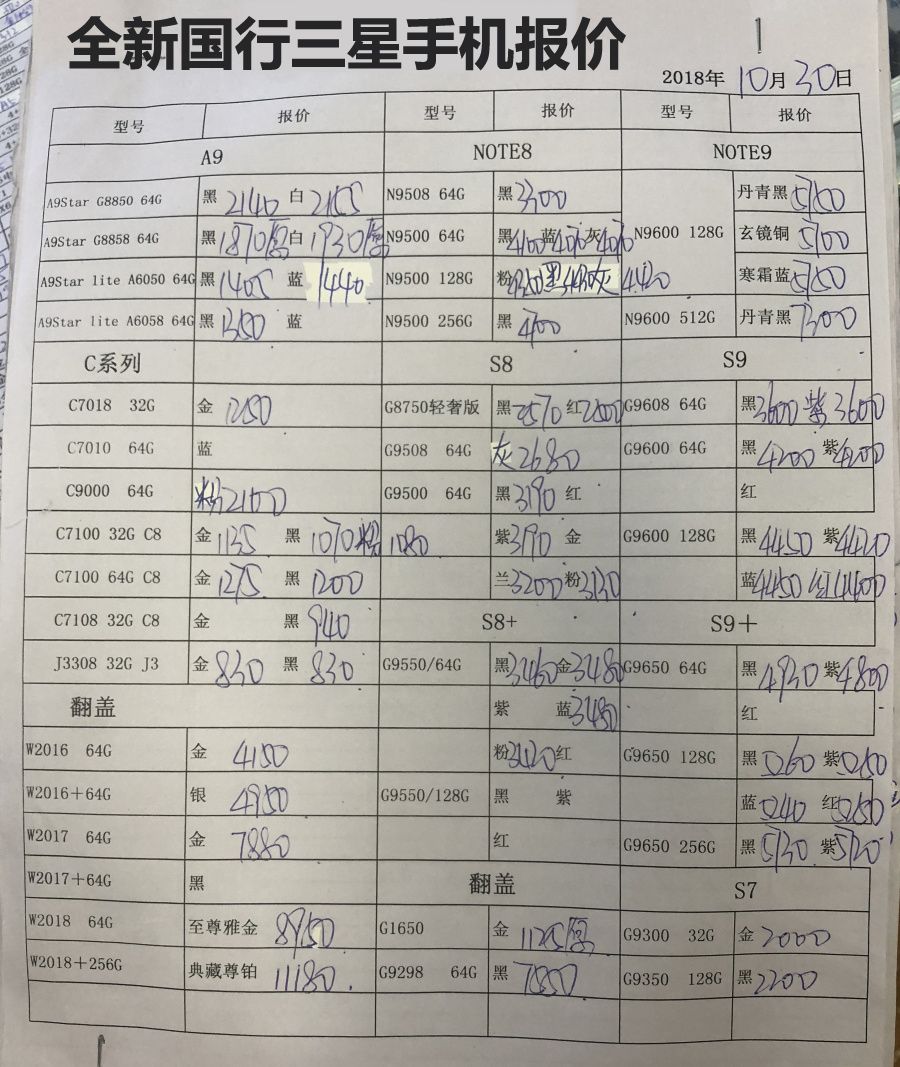 全新国行三星手机报价
2018年 10月 30日
型号 报价 型号 报价 型号 报价
A9 NOTE8 NOTE9
A9Star G8850 64G 黑 2140 白 2155 N9508 64G 黑 3300 丹青黑 5100
A9Star G8858 64G 黑 1870 白 1930 N9500 64G 黑 4100 蓝 4070 灰 4070 N9600 128G 玄镜铜 5100
A9Star lite A6050 64G 黑 1405 蓝 1440 N9500 128G 粉 黑 4430 灰 4420 寒霜蓝 5150
A9Star lite A6058 64G 黑 1350 蓝 N9500 256G 黑 N9600 512G 丹青黑 7300
C系列 S8 S9
C7018 32G 金 1250 G8750轻奢版 黑 2570 红 2500 G9608 64G 黑 3600 紫 3600
C7010 64G 蓝 G9508 64G 灰 2680 G9600 64G 黑 4200 紫 4200
C9000 64G 粉 2100 G9500 64G 黑 3190 红 红
C7100 32G C8 金 1135 黑 1070 粉 1080 紫 3190 金 G9600 128G 黑 4450 紫 4420
C7100 64G C8 金 1275 黑 1200 兰 3200 粉 3130 蓝 4450 红 4400
C7108 32G C8 金 黑 940 S8+ S9＋
J3308 32G J3 金 830 黑 830 G9550/64G 黑 3460 金 3480 G9650 64G 黑 4930 紫 4800
翻盖 紫 蓝 3480 红
W2016 64G 金 4150 粉 3420 红 G9650 128G 黑 5260 紫 5250
W2016＋64G 银 4950 G9550/128G 黑 紫 蓝 5240 红 5250
W2017 64G 金 7880 红 G9650 256G 黑 5730 紫 5720
W2017＋64G 黑 翻盖 S7
W2018 64G 至尊雅金 8950 G1650 金 1125 G9300 32G 金 2000
W2018＋256G 典藏尊铂 11180 G9298 64G 黑 7850 G9350 128G 黑 2200